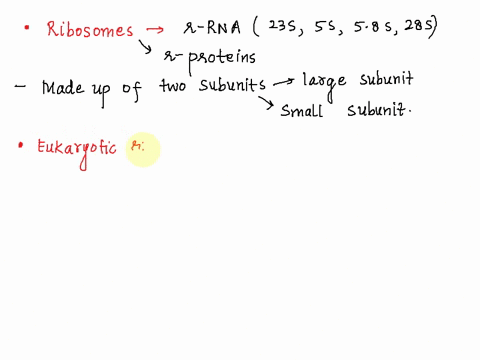 • Ribosomes → r-RNA ( 23S, 5S, 5.8S, 28S)
↘ r-proteins
- Made up of two subunits → large subunit
↘ small subunit.
• Eukaryotic ri